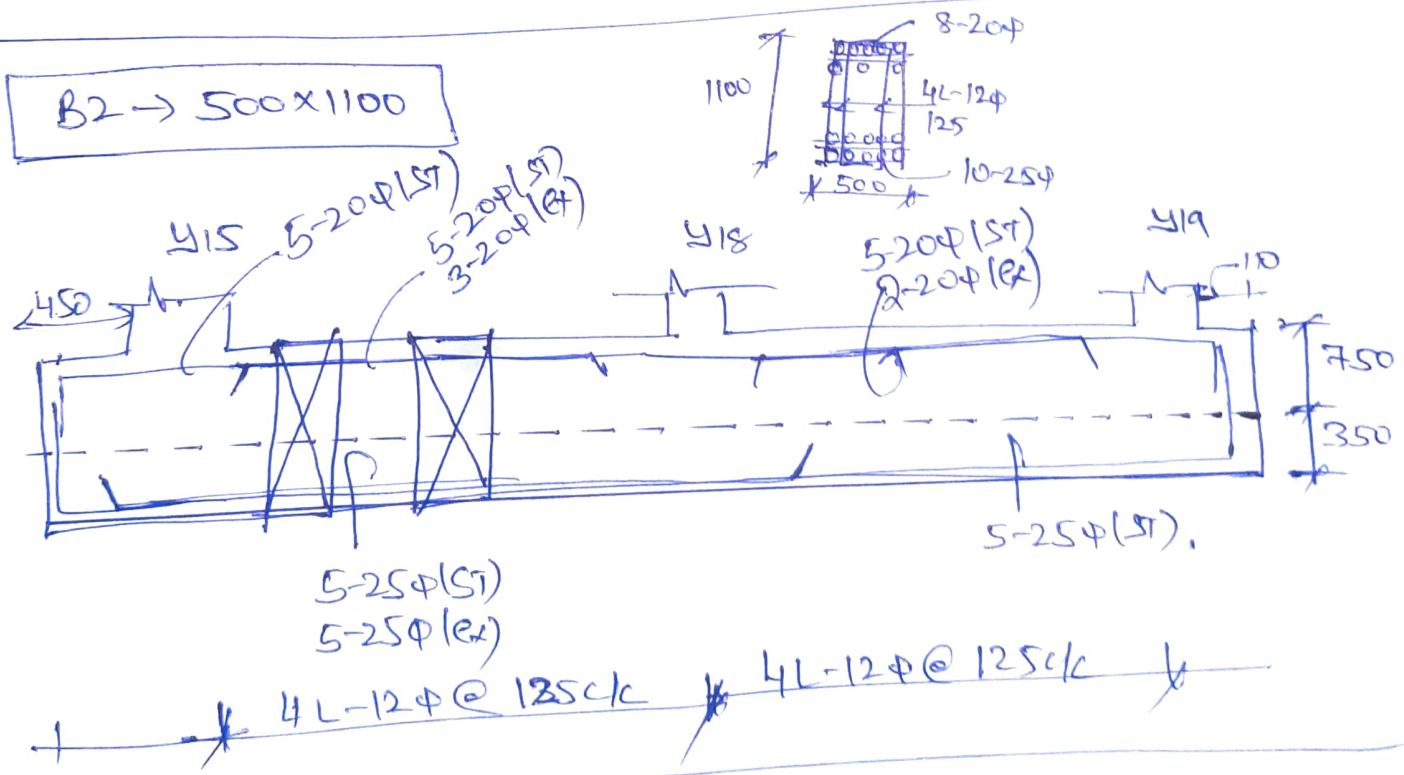 8-20φ
B2 → 500×1100
1100
4L-12φ
125
10-25φ
500
5-20φ(ST)
5-20φ(ST)
3-20φ(ex)
Y15
Y18
5-20φ(ST)
2-20φ(ex)
Y19
450
750
350
5-25φ(ST).
5-25φ(ST)
5-25φ(ex)
4L-12φ@ 125c/c
4L-12φ@ 125c/c